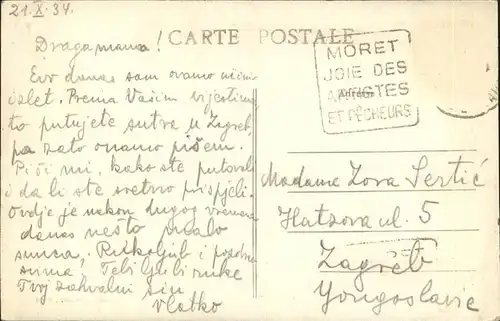 21.X.34.
CARTE POSTALE
Draga mama!
Evo danas sam ovamo učinio
izlet. Prema Vašim vijestima
to putujete sutra u Zgreb,
pa zato onamo pišem.
Piši mi, kako ste putovali
i da li ste sretno prispjeli.
Ovdje je nakon dugog vremena
danas nešto malo
sunca, Rukoljub i pozdrav
svima, Tebi ljubi ruke
Tvoj zahvalni sin
Vlatko
MORET
JOIE DES
ARTISTES
ET PÊCHEURS
Madame Zora Sertić
Hatzova ul. 5
Zagreb
Yougoslavie